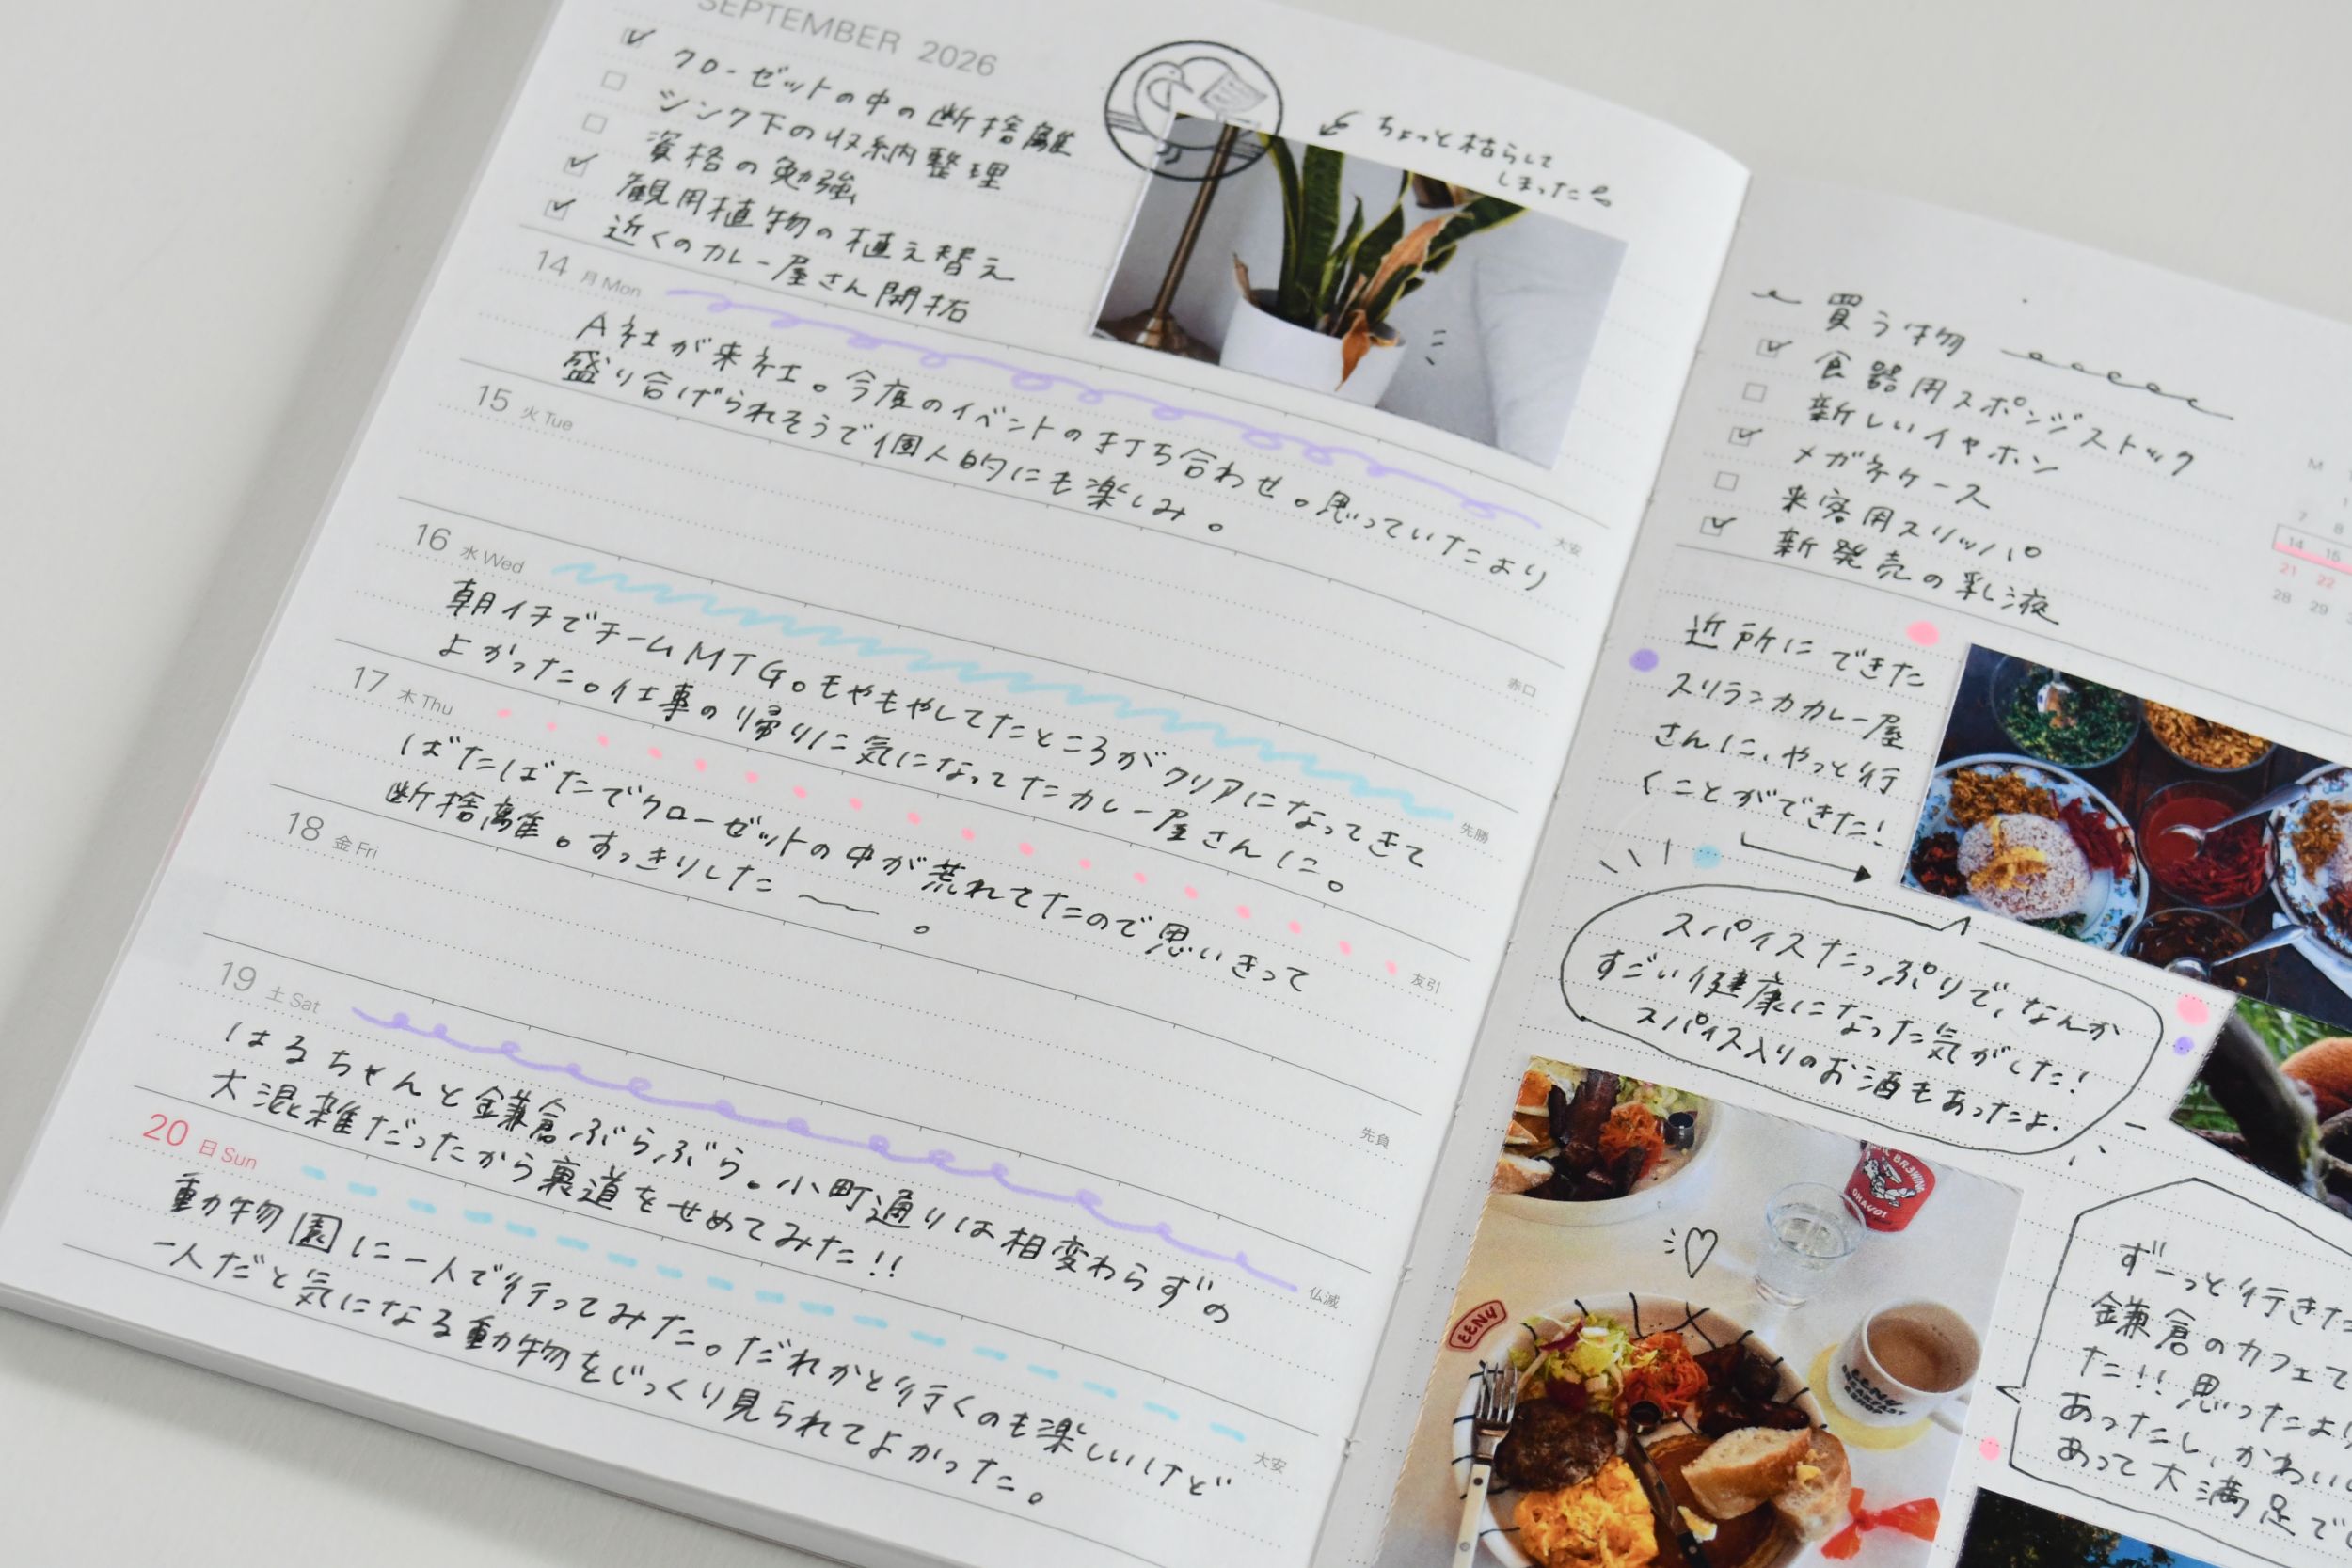 SEPTEMBER 2026
クローゼットの中の断捨離
シンク下の収納整理
資格の勉強
観用植物の植え替え
近くのカレー屋さん開拓
ちょっと枯らして
しまった
14 月 Mon
大安
A社が来社。今度のイベントの打ち合わせ。思っていたより
盛り合げられそうで個人的にも楽しみ。
15 火 Tue
赤口
16 水 Wed
先勝
朝イチでチームMTG。もやもやしてたところがクリアになってきて
よかった。仕事の帰りに気になってたカレー屋さんに。
17 木 Thu
友引
ばたばたでクローゼットの中が荒れてたので思いきって
断捨離。すっきりした〜。
18 金 Fri
先負
19 土 Sat
仏滅
はるちゃんと鎌倉ぶらぶら。小町通りは相変わらずの
大混雑だったから裏道をせめてみた!!
20 日 Sun
大安
動物園に一人で行ってみた。だれかと行くのも楽しいけど
一人だと気になる動物をじっくり見られてよかった。
買う物
食器用スポンジストック
新しいイヤホン
メガネケース
来客用スリッパ
新発売の乳液
M
7 8
14 15
21 22
28 29
近所にできた
スリランカカレー屋
さんに、やっと行
くことができた!
スパイスたっぷりで、なんか
すごい健康になった気がした!
スパイス入りのお酒もあったよ.
EENY
ずーっと行きた
鎌倉のカフェで
た!! 思ったより
あったし、かわいい
あって大満足で